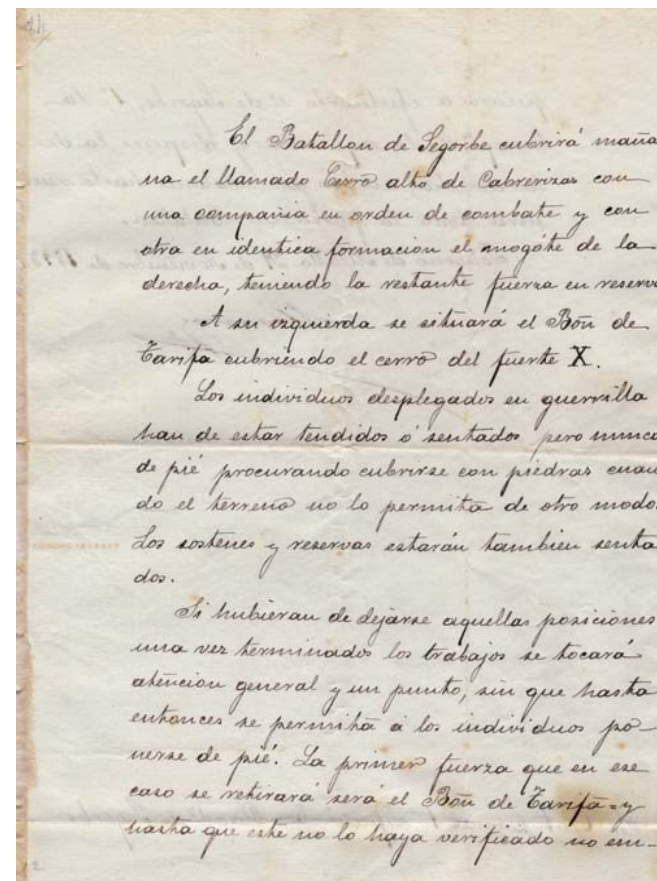 El Batallon de Segorbe cubrirá maña
na el llamado Cerro alto de Cabrerizas con
una compañia en orden de combate y con
otra en identica formacion el mogóte de la
derecha, teniendo la restante fuerza en reserva
A su izquierda se situará el Bón de
Tarifa cubriendo el cerro del fuerte X.
Los individuos desplegados en guerrilla
han de estar tendidos ó sentados pero nunca
de pié procurando cubrirse con piedras cuan
do el terreno no lo permita de otro modo.
Los sostenes y reservas estarán tambien senta
dos.
Si hubieran de dejarse aquellas posiciones
una vez terminados los trabajos se tocará
atencion general y un punto, sin que hasta
entonces se permita á los individuos po-
nerse de pié. La primer fuerza que en ese
caso se retirará será el Bón de Tarifa y
hasta que este no lo haya verificado no em-